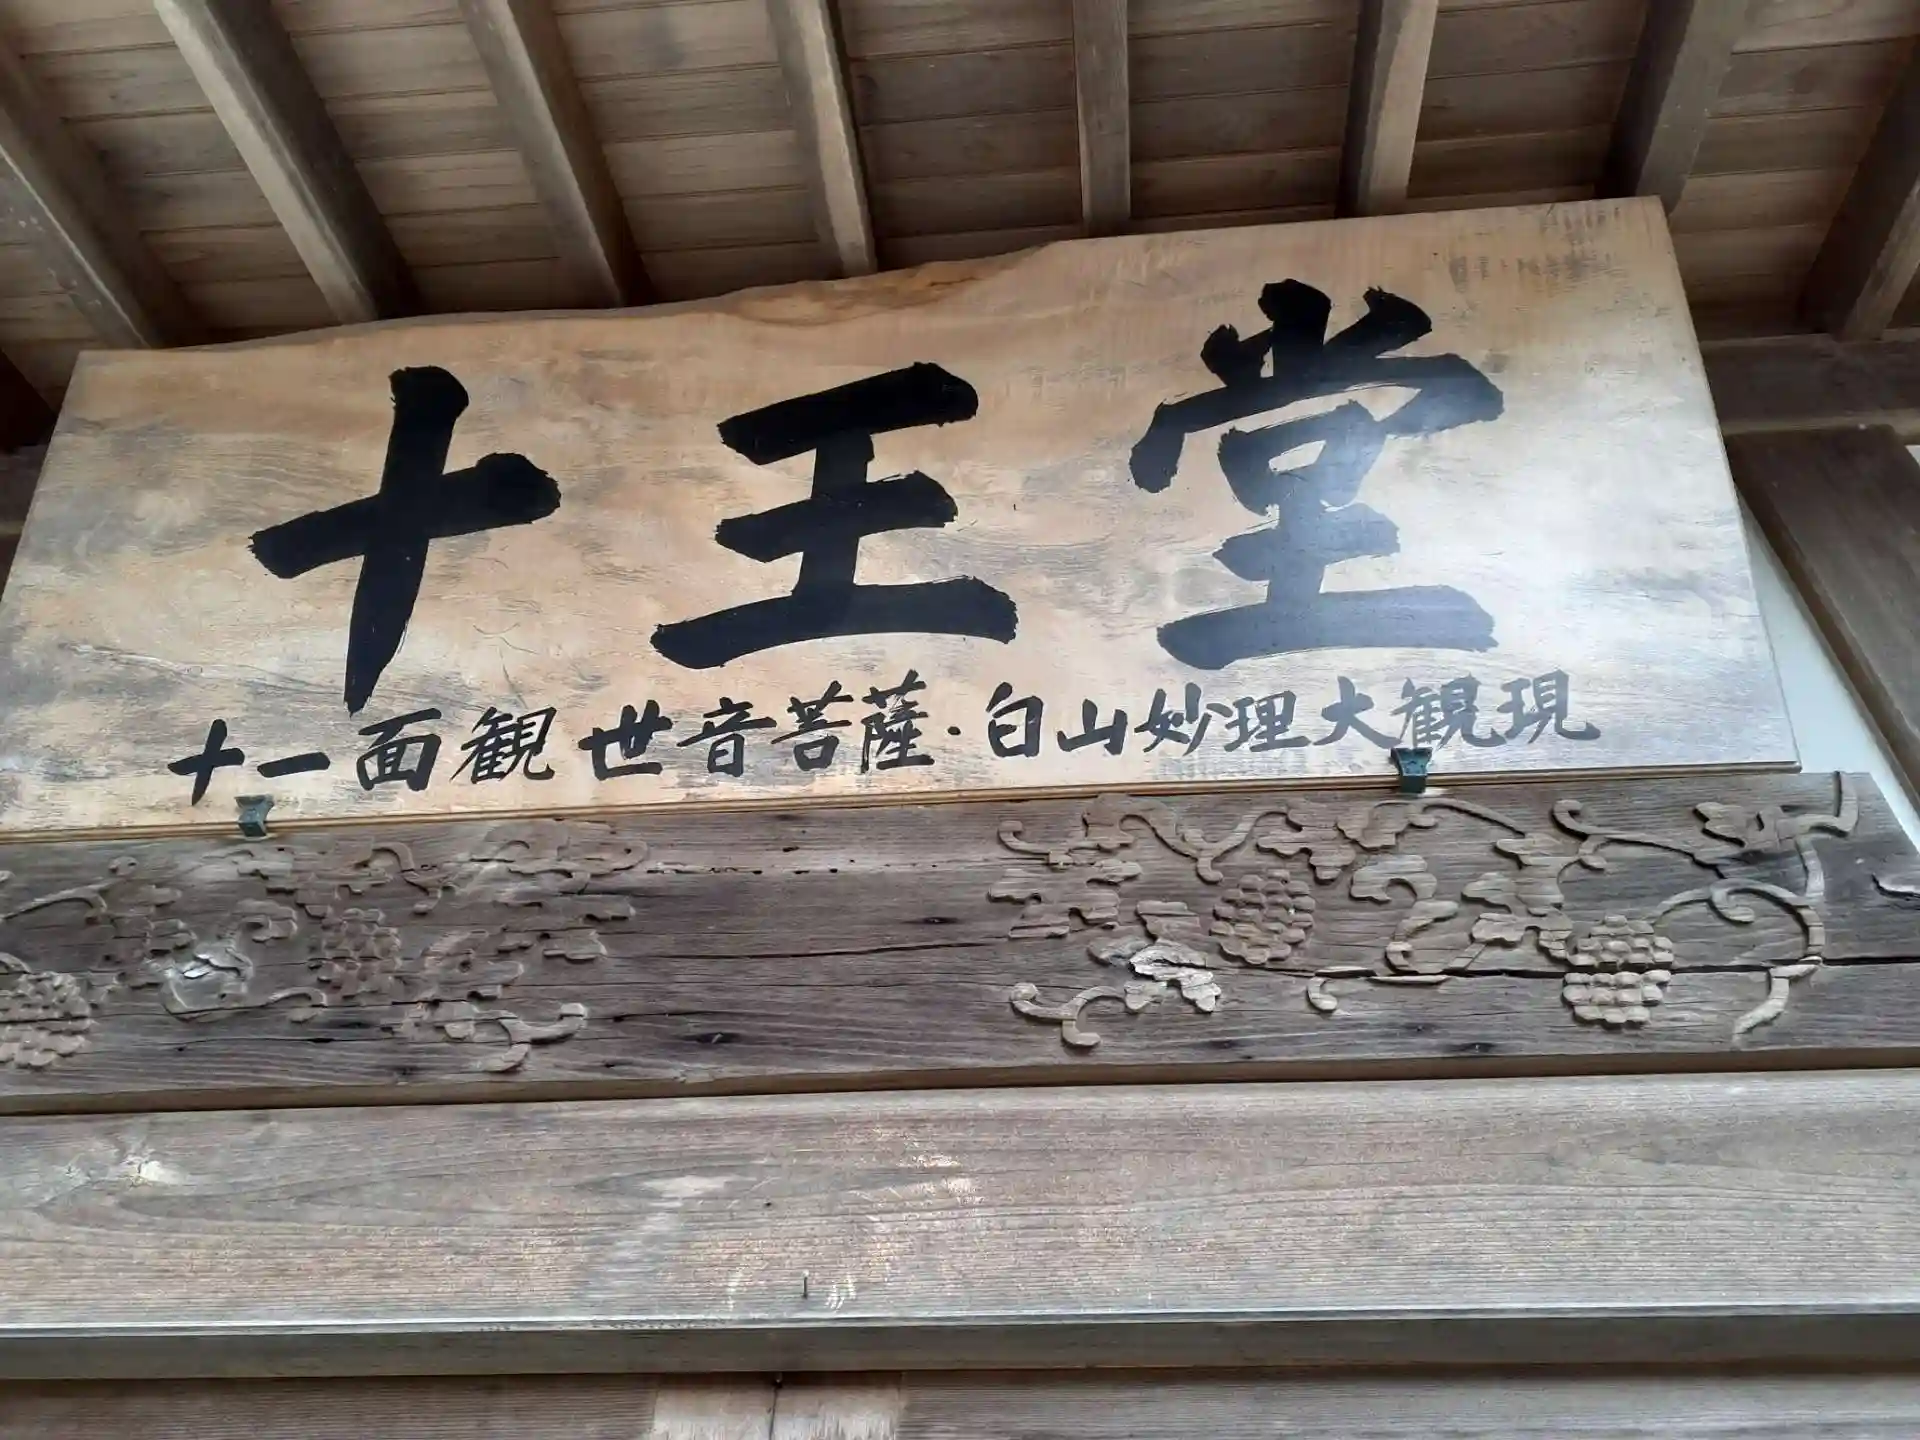 十王堂
十一面観世音菩薩・白山妙理大観現